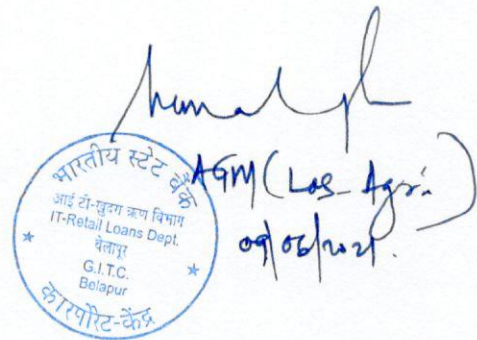 AGM (Los-Agri.)
09/06/2021.
भारतीय स्टेट बैंक
आई टी-खुदरा ऋण विभाग
IT-Retail Loans Dept.
बेलापूर
G.I.T.C.
Belapur
कारपोरेट-केंद्र